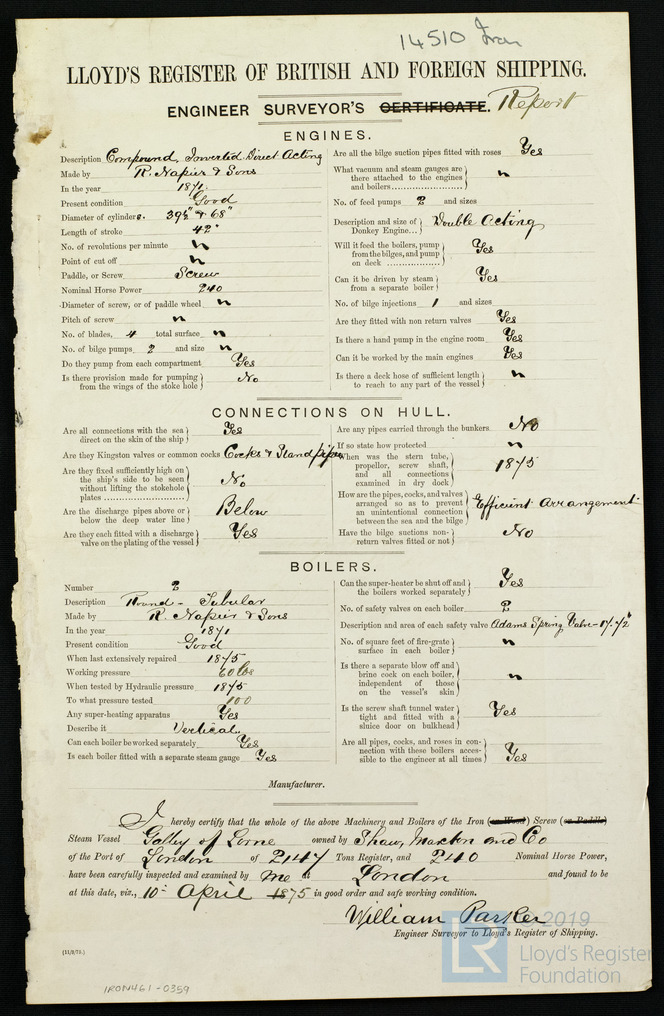 14510 Iron
LLOYD'S REGISTER OF BRITISH AND FOREIGN SHIPPING.
ENGINEER SURVEYOR'S CERTIFICATE. Report
ENGINES.
Description Compound, Inverted Direct Acting
Made by R. Napier & Sons
In the year 1871.
Present condition Good
Diameter of cylinders. 39½" & 68"
Length of stroke 42"
No. of revolutions per minute
Point of cut off
Paddle, or Screw Screw
Nominal Horse Power 240
Diameter of screw, or of paddle wheel
Pitch of screw
No. of blades, 4 total surface
No. of bilge pumps 2 and size
Do they pump from each compartment Yes
Is there provision made for pumping from the wings of the stoke hole No
Are all the bilge suction pipes fitted with roses Yes
What vacuum and steam gauges are
there attached to the engines
and boilers
No. of feed pumps 2 and sizes
Description and size of Donkey Engine... Double Acting
Will it feed the boilers, pump
from the bilges, and pump
on deck Yes
Can it be driven by steam
from a separate boiler Yes
No. of bilge injections 1 and sizes
Are they fitted with non return valves Yes
Is there a hand pump in the engine room Yes
Can it be worked by the main engines Yes
Is there a deck hose of sufficient length
to reach to any part of the vessel
CONNECTIONS ON HULL.
Are all connections with the sea
direct on the skin of the ship Yes
Are they Kingston valves or common cocks Cocks & Stand pipes
Are they fixed sufficiently high on
the ship's side to be seen
without lifting the stokehole
plates No
Are the discharge pipes above or
below the deep water line Below
Are they each fitted with a discharge
valve on the plating of the vessel Yes
Are any pipes carried through the bunkers No
If so state how protected
When was the stern tube,
propellor, screw shaft,
and all connections
examined in dry dock 1875
How are the pipes, cocks, and valves
arranged so as to prevent
an unintentional connection
between the sea and the bilge Efficient Arrangement
Have the bilge suctions non-
return valves fitted or not No
BOILERS.
Number 2
Description Round - Tubular
Made by R. Napier & Sons
In the year 1871
Present condition Good
When last extensively repaired 1875
Working pressure 60 lbs
When tested by Hydraulic pressure 1875
To what pressure tested 100
Any super-heating apparatus Yes
Describe it Vertical
Can each boiler be worked separately Yes
Is each boiler fitted with a separate steam gauge Yes
Can the super-heater be shut off and
the boilers worked separately Yes
No. of safety valves on each boiler 2
Description and area of each safety valve Adams Spring Valve
No. of square feet of fire-grate
surface in each boiler
Is there a separate blow off and
brine cock on each boiler,
independent of those
on the vessel's skin
Is the screw shaft tunnel water
tight and fitted with a
sluice door on bulkhead Yes
Are all pipes, cocks, and roses in con-
nection with these boilers acces-
sible to the engineer at all times Yes
Manufacturer.
I hereby certify that the whole of the above Machinery and Boilers of the Iron (or Wood) Screw (or Paddle)
Steam Vessel Galley of Lorne owned by Shaw, Maxton and Co
of the Port of London of 2147 Tons Register, and 240 Nominal Horse Power,
have been carefully inspected and examined by me at London and found to be
at this date, viz., 10 April 1875 in good order and safe working condition.
William Parker
Engineer Surveyor to Lloyd's Register of Shipping.
(11/9/73.)
IRON461-0359
© 2019
LR Lloyd's Register
Foundation